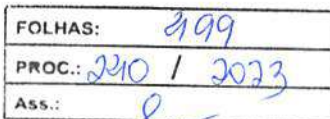 FOLHAS: 499
PROC.: 240 / 2023
Ass.: